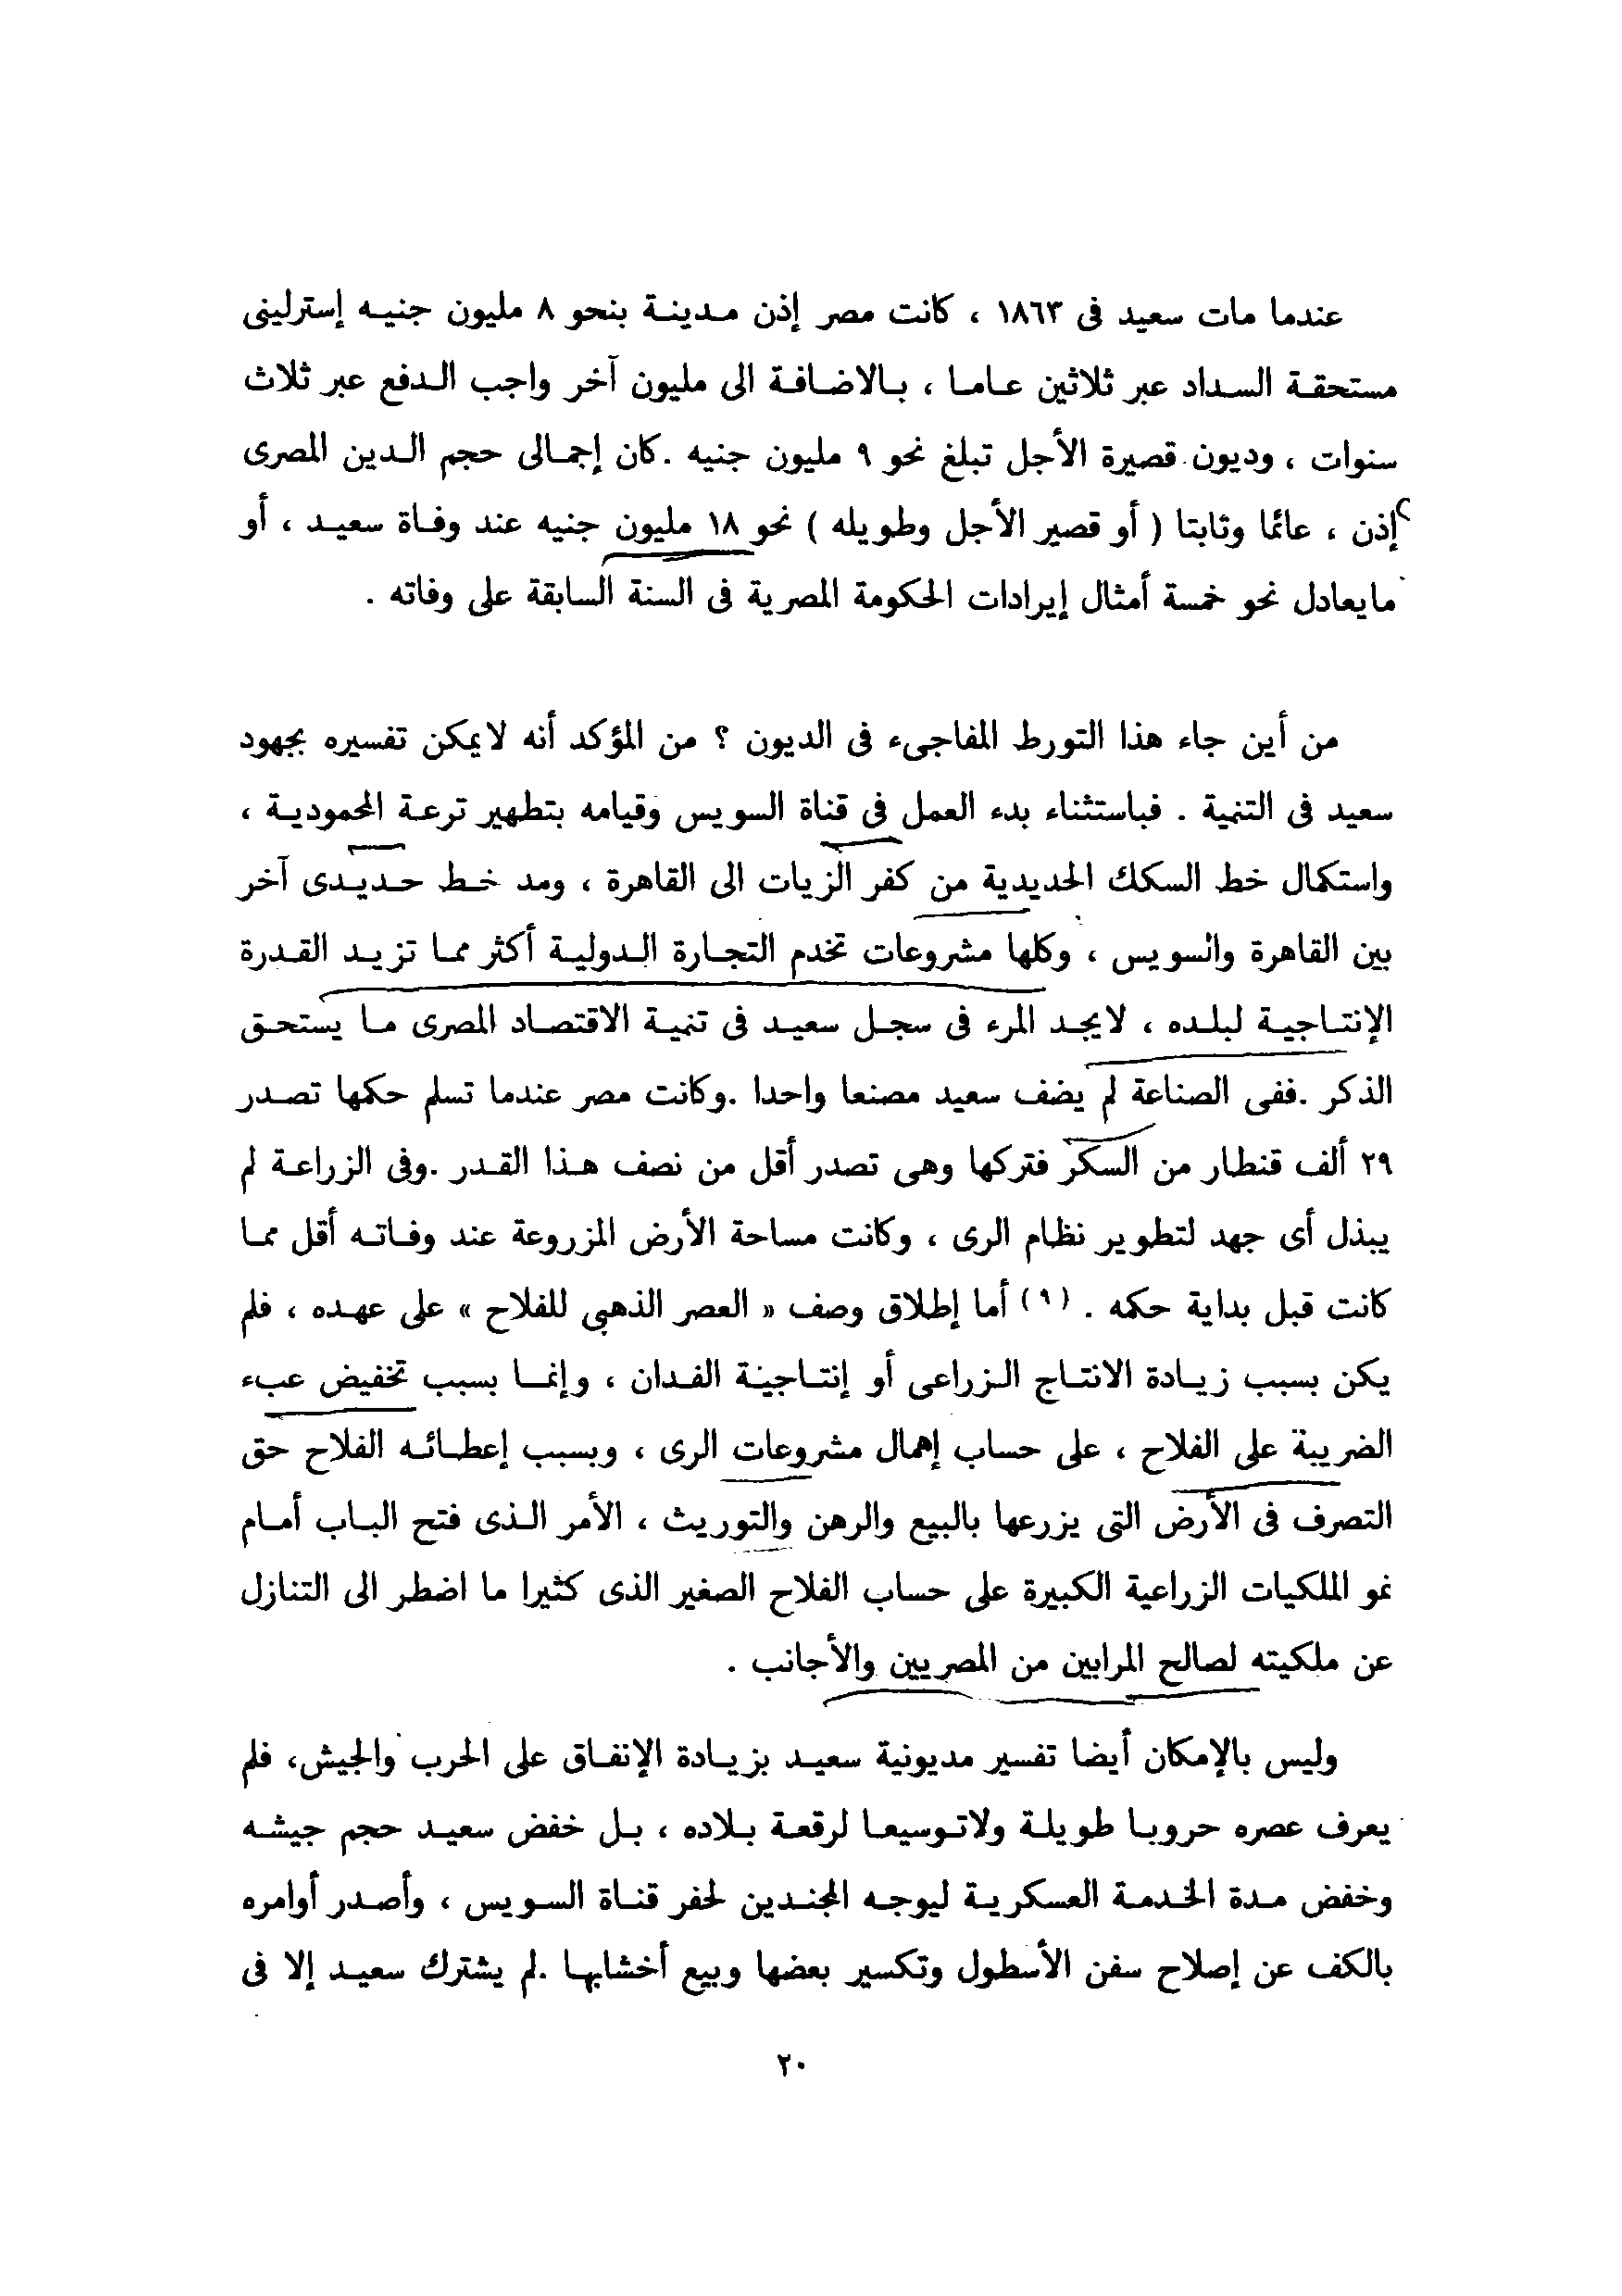 عندما مات سعيد فى ١٨٦٣ ، كانت مصر إذن مدينة بنحو ٨ مليون جنيه إسترلينى
مستحقة السداد عبر ثلاثين عاما ، بالاضافة الى مليون آخر واجب الدفع عبر ثلاث
سنوات ، وديون قصيرة الأجل تبلغ نحو ٩ مليون جنيه .كان إجمالى حجم الدين المصرى
إذن ، عائما وثابتا ( أو قصير الأجل وطويله ) نحو ١٨ مليون جنيه عند وفاة سعيد ، أو
مايعادل نحو خمسة أمثال إيرادات الحكومة المصرية فى السنة السابقة على وفاته .
من أين جاء هذا التورط المفاجىء فى الديون ؟ من المؤكد أنه لايمكن تفسيره بجهود
سعيد فى التنمية . فباستثناء بدء العمل فى قناة السويس وقيامه بتطهير ترعة المحمودية ،
واستكمال خط السكك الحديدية من كفر الزيات الى القاهرة ، ومد خط حديدى آخر
بين القاهرة والسويس ، وكلها مشروعات تخدم التجارة الدولية أكثر مما تزيد القدرة
الإنتاجية لبلده ، لايجد المرء فى سجل سعيد فى تنمية الاقتصاد المصرى ما يستحق
الذكر .ففى الصناعة لم يضف سعيد مصنعا واحدا .وكانت مصر عندما تسلم حكمها تصدر
٢٩ ألف قنطار من السكر فتركها وهى تصدر أقل من نصف هذا القدر .وفى الزراعة لم
يبذل أى جهد لتطوير نظام الرى ، وكانت مساحة الأرض المزروعة عند وفاته أقل مما
كانت قبل بداية حكمه . (٩) أما إطلاق وصف « العصر الذهبى للفلاح » على عهده ، فلم
يكن بسبب زيادة الانتاج الزراعى أو إنتاجية الفدان ، وإنما بسبب تخفيض عبء
الضريبة على الفلاح ، على حساب إهمال مشروعات الرى ، وبسبب إعطائه الفلاح حق
التصرف فى الأرض التى يزرعها بالبيع والرهن والتوريث ، الأمر الذى فتح الباب أمام
نمو الملكيات الزراعية الكبيرة على حساب الفلاح الصغير الذى كثيرا ما اضطر الى التنازل
عن ملكيته لصالح المرابين من المصريين والأجانب .
وليس بالإمكان أيضا تفسير مديونية سعيد بزيادة الإنفاق على الحرب والجيش، فلم
يعرف عصره حروبا طويلة ولاتوسيعا لرقعة بلاده ، بل خفض سعيد حجم جيشه
وخفض مدة الخدمة العسكرية ليوجه المجندين لحفر قناة السويس ، وأصدر أوامره
بالكف عن إصلاح سفن الأسطول وتكسير بعضها وبيع أخشابها .لم يشترك سعيد إلا فى
٢٠